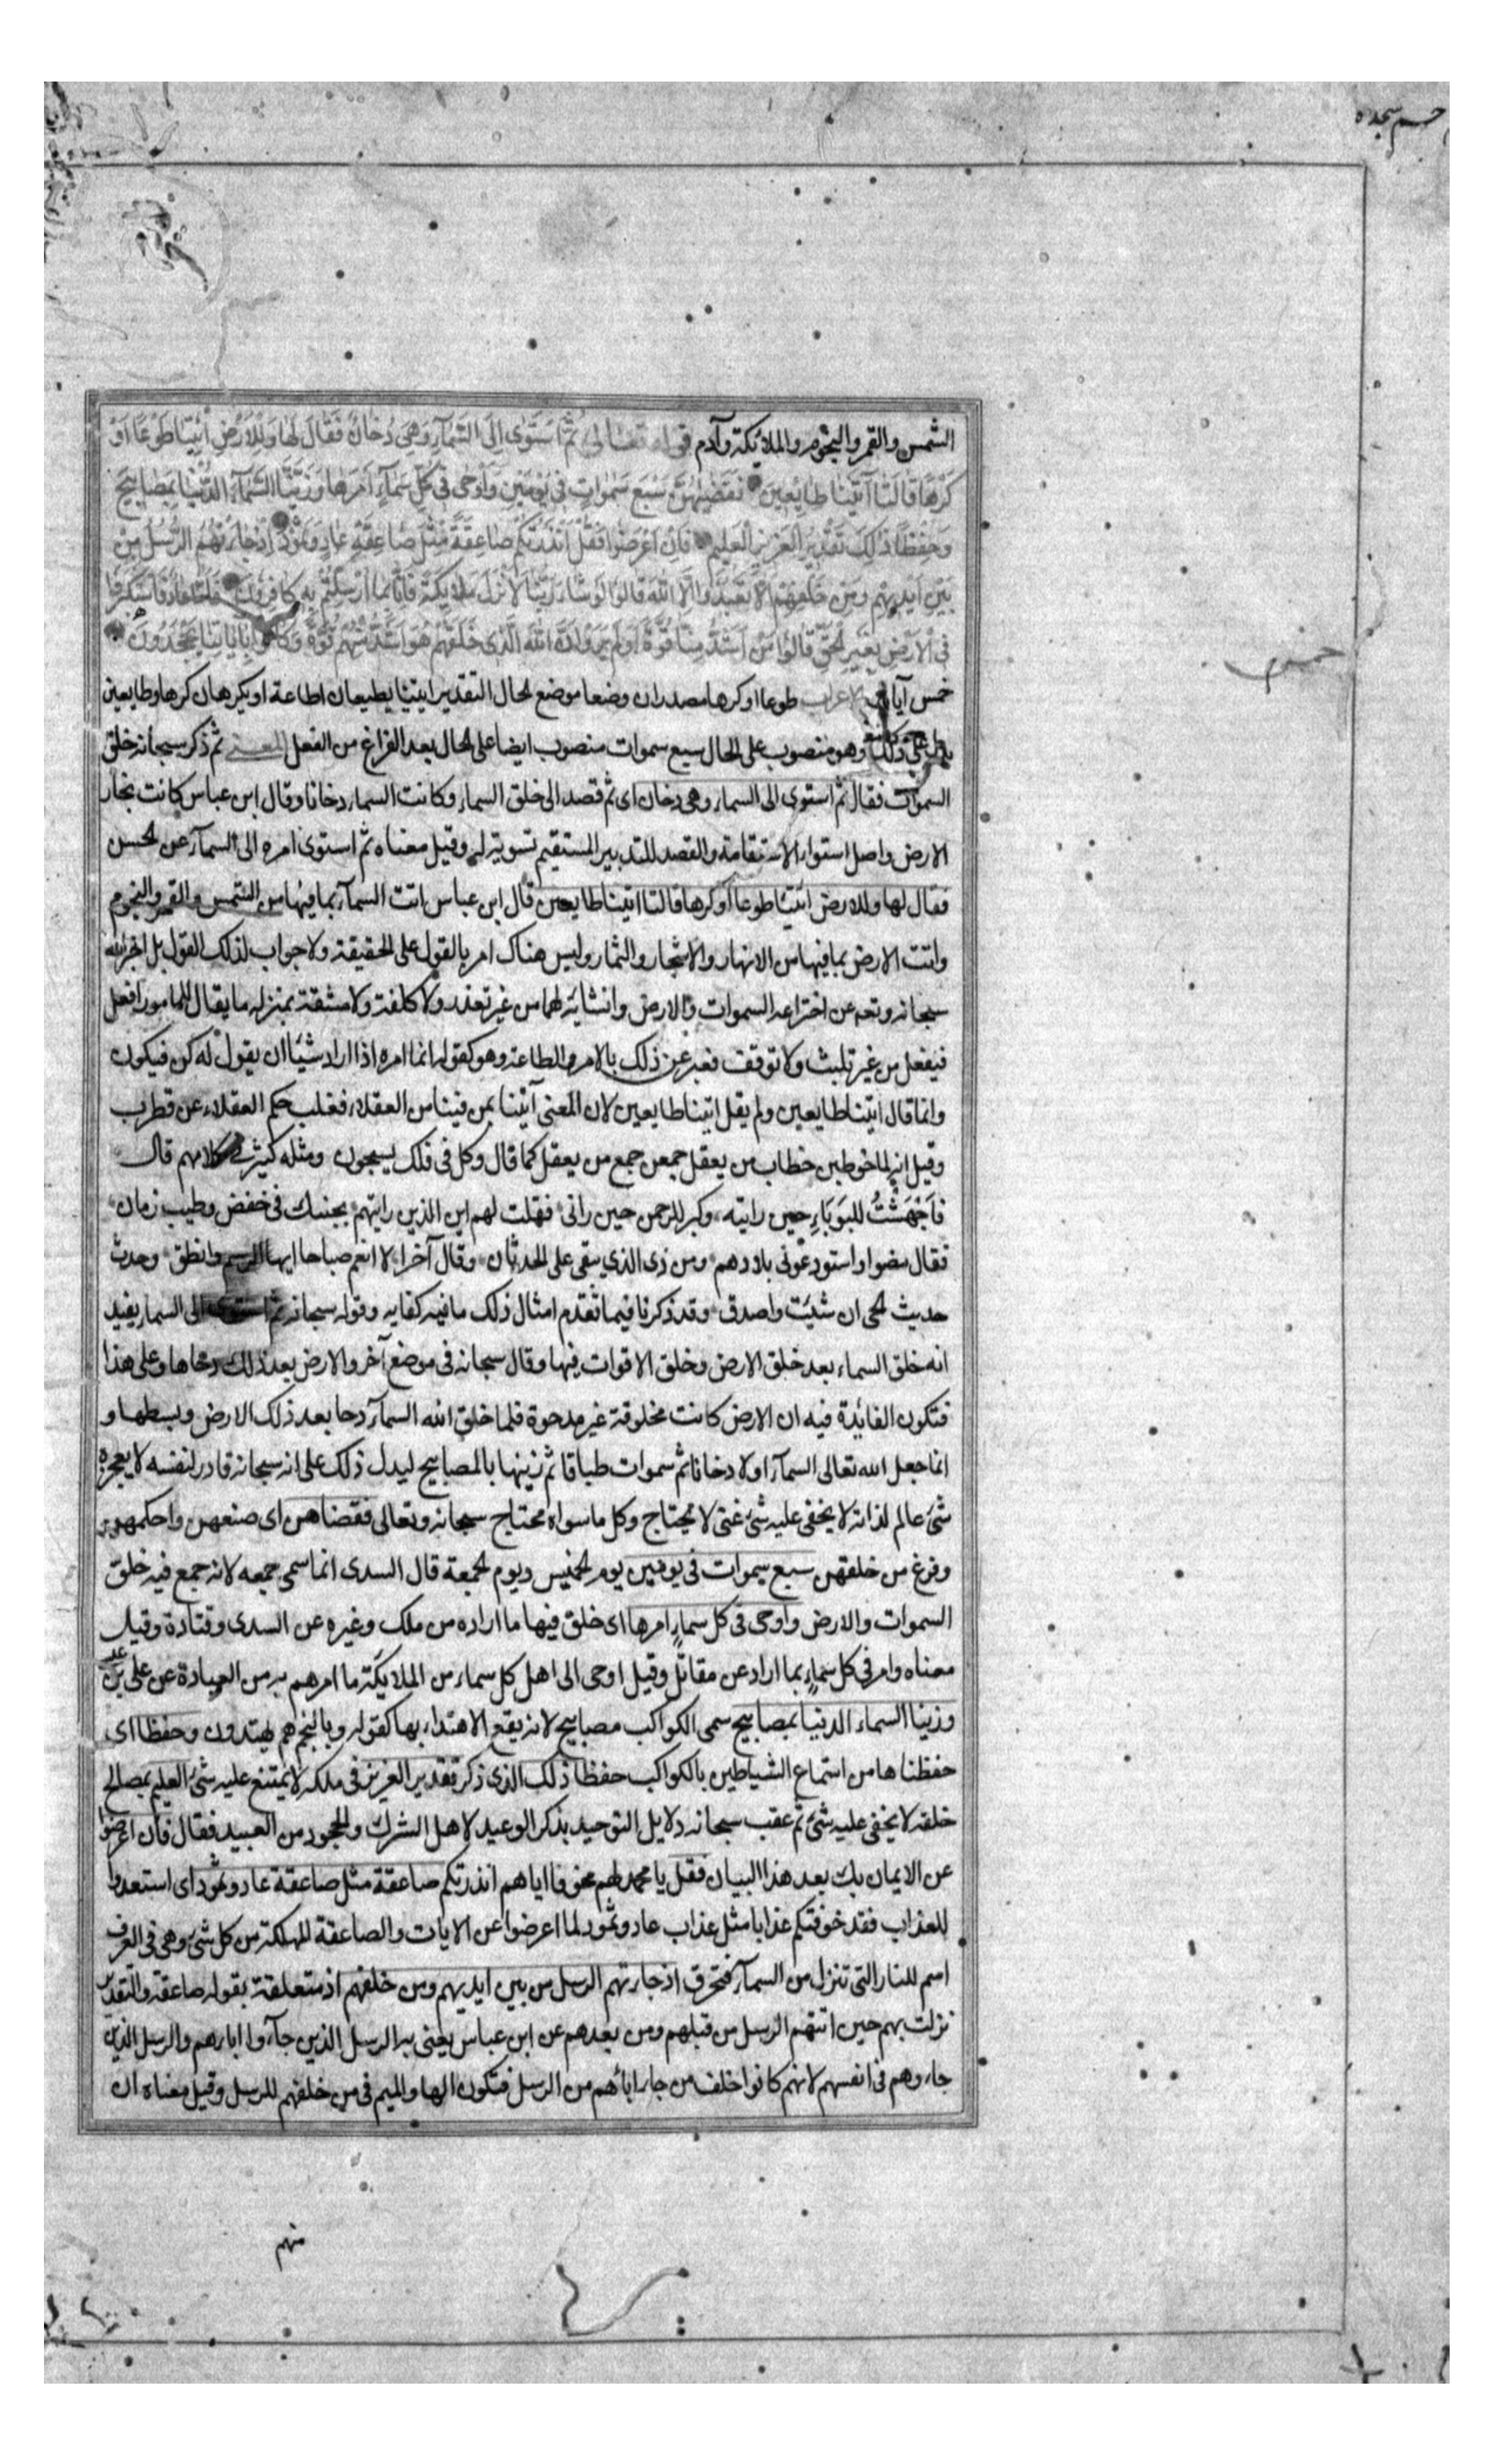 حسم سجده
الشمس والقمر والنجوم والملائكة وآدم قوله تعالى ثُمَّ اسْتَوٰى اِلَى السَّمَآءِ وَهِيَ دُخَانٌ فَقَالَ لَهَا وَلِلْاَرْضِ ائْتِيَا طَوْعًا اَوْ
كَرْهًا قَالَتَا اَتَيْنَا طَايِعِينَ فَقَضٰيهُنَّ سَبْعَ سَمٰوَاتٍ فِي يَوْمَيْنِ وَاَوْحٰى فِي كُلِّ سَمَآءٍ اَمْرَهَا وَزَيَّنَّا السَّمَآءَ الدُّنْيَا بِمَصَابِيحَ
وَحِفْظًا ذٰلِكَ تَقْدِيرُ الْعَزِيزِ الْعَلِيمِ فَاِنْ اَعْرَضُوا فَقُلْ اَنْذَرْتُكُمْ صَاعِقَةً مِثْلَ صَاعِقَةِ عَادٍ وَثَمُودَ اِذْ جَاءَتْهُمُ الرُّسُلُ مِنْ
بَيْنِ اَيْدِيهِمْ وَمِنْ خَلْفِهِمْ اَلَّا تَعْبُدُوا اِلَّا اللّٰهَ قَالُوا لَوْ شَاءَ رَبُّنَا لَاَنْزَلَ مَلَايِكَةً فَاِنَّا بِمَا اُرْسِلْتُمْ بِهِ كَافِرُونَ فَاَمَّا عَادٌ فَاسْتَكْبَرُوا
فِي الْاَرْضِ بِغَيْرِ الْحَقِّ وَقَالُوا مَنْ اَشَدُّ مِنَّا قُوَّةً اَوَلَمْ يَرَوْا اَنَّ اللّٰهَ الَّذِي خَلَقَهُمْ هُوَ اَشَدُّ مِنْهُمْ قُوَّةً وَكَانُوا بِاٰيَاتِنَا يَجْحَدُونَ
خمس آيات الاعراب طوعا او كرها مصدران وضعا موضع الحال التقدير ايتيا يطيعان اطاعة او يكرهان كرها وطايعين
ذلك وهو منصوب على الحال سبع سموات منصوب ايضا على الحال بعد الفراغ من الفعل المعنى ثم ذكر سبحانه خلق
السموات فقال ثم استوى الى السماء وهي دخان اى ثم قصد الى خلق السماء وكانت السماء دخانا وقال ابن عباس كانت بخار
الارض واصل استواء الاستقامة والقصد للتدبير المستقيم تسوية له وقيل معناه ثم استوى امره الى السمآء عن الحسن
فقال لها وللارض ائتيا طوعا او كرها قالتا اتينا طايعين قال ابن عباس اتت السمآء بما فيها من الشمس والقمر والنجوم
واتت الارض بما فيها من الانهار والاشجار والثمار وليس هناك امر بالقول على الحقيقة ولا جواب لذلك القول بل اخبر الله
سبحانه وتعه عن اختراعه السموات والارض وانشائه لهما من غير تعذر ولا كلفة ولا مشقة بمنزله ما يقال للمامور افعل
فيفعل من غير تلبث ولا توقف فعبر عن ذلك بالامر والطاعة وهو كقوله انما امره اذا اراد شيئا ان يقول له كن فيكون
وانما قال اتينا طايعين ولم يقل اتينا طايعين لان المعنى آتينا بمن فينا من العقلاء فغلب حكم العقلاء عن قطرب
وقيل انه لما خوطبن خطاب من يعقل جمعن جمع من يعقل كما قال وكل في فلك يسبحون ومثله كثير في كلامهم قال
فَاَجْهَشْتُ للبَوبَاءِ حين رايته وكبر للرحمن حين رانى فقلت لهم اين الذين رايتهم بجنبك في خفض وطيب زمان
فقال مضوا واستودعوني بلادهم ومن ذى الذي يبقى على الحدثان وقال آخر الا انعم صباحا ايها الرسم وانطق وحدث
حديث الحى ان شئت واصدق وقد ذكرنا فيما تقدم امثال ذلك ما فيه كفايه وقوله سبحانه ثم استوى الى السماء يفيد
انه خلق السماء بعد خلق الارض وخلق الاقوات فيها وقال سبحانه في موضع آخر والارض بعد ذلك دحاها وعلى هذا
فتكون الفائدة فيه ان الارض كانت مخلوقة غير مدحوة فلما خلق الله السمآء دحا بعد ذلك الارض وبسطها و
انما جعل الله تعالى السمآء اولا دخانا ثم سموات طباقا ثم زينها بالمصابيح ليدل ذلك على انه سبحانه قادر لنفسه لا يعجزه
شئ عالم لذاته لا يخفى عليه شئ غنى لا يحتاج وكل ما سواه محتاج سبحانه وتعالى فقضاهن اى صنعهن واحكمهن
وفرغ من خلقهن سبع سموات في يومين يوم الخميس ويوم الجمعة قال السدى انما سمى جمعه لانه جمع فيه خلق
السموات والارض واوحى في كل سماءٍ امرها اى خلق فيها ما اراده من ملك وغيره عن السدى وقتادة وقيل
معناه وامر في كل سماءٍ بما اراد عن مقاتل وقيل اوحى الى اهل كل سماء من الملائكة ما امرهم به من العبادة عن على بن
وزينا السماء الدنيا بمصابيح سمى الكواكب مصابيح لانه يقع الاهتداء بها كقوله وبالنجم هم يهتدون وحفظا اى
حفظناها من استماع الشياطين بالكواكب حفظا ذلك الذى ذكر تقدير العزيز في ملكه لا يمتنع عليه شئ العليم بمصالح
خلقه لا يخفى عليه شئ ثم عقب سبحانه دلايل التوحيد بذكر الوعيد لاهل الشرك والجحود من العبيد فقال فان اعرضوا
عن الايمان بك بعد هذا البيان فقل يا محمد لهم مخوفا اياهم انذرتكم صاعقة مثل صاعقة عاد وثمود اى استعدوا
للعذاب فقد خوفتكم عذابا مثل عذاب عاد وثمود لما اعرضوا عن الايات والصاعقة المهلكة من كل شئ وهى في العرف
اسم للنار التى تنزل من السمآء فتحرق اذ جاءتهم الرسل من بين ايديهم ومن خلفهم اذ متعلقة بقوله صاعقة والتقدير
نزلت بهم حين اتتهم الرسل من قبلهم ومن بعدهم عن ابن عباس يعنى به الرسل الذين جآءوا اباءهم والرسل الذين
جاءوهم في انفسهم لانهم كانوا خلف من جاء اباءهم من الرسل فتكون الها والميم في من خلفهم للرسل وقيل معناه ان
منهم